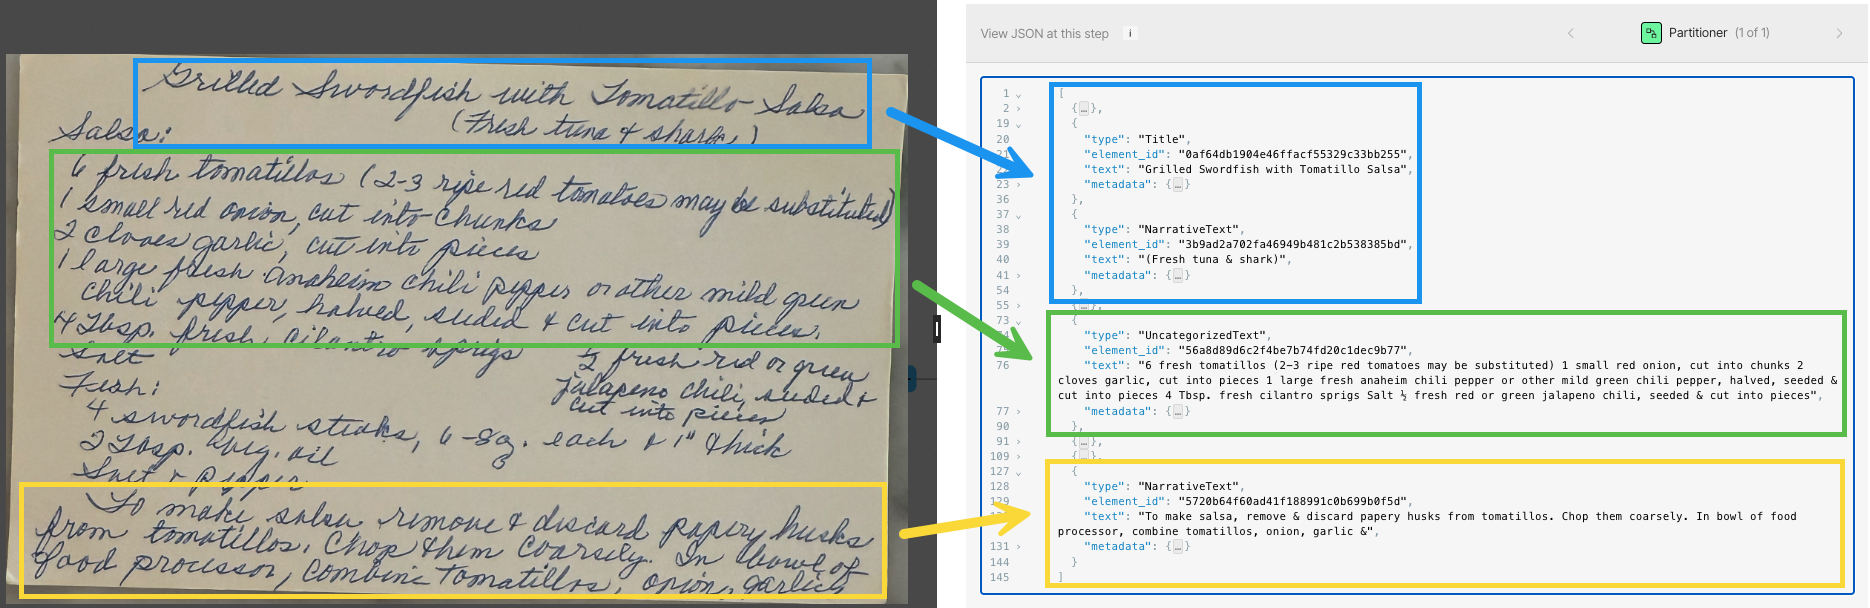 Grilled Swordfish with Tomatillo Salsa
(Fresh tuna & shark)
Salsa:
6 fresh tomatillos (2-3 ripe red tomatoes may be substituted)
1 small red onion, cut into chunks
2 cloves garlic, cut into pieces
1 large fresh anaheim chili pepper or other mild green
chili pepper, halved, seeded & cut into pieces.
4 Tbsp. fresh cilantro sprigs
Salt
½ fresh red or green
jalapeno chili, seeded &
cut into pieces
Fish:
4 swordfish steaks, 6-8 oz. each & 1" thick
2 Tbsp. veg. oil
Salt & Pepper
To make salsa remove & discard papery husks
from tomatillos. Chop them coarsely. In bowl of
food processor, combine tomatillos, onion, garlic
View JSON at this step i
Partitioner (1 of 1)
1 [
2 {…},
19 {
20 "type": "Title",
21 "element_id": "0af64db1904e46ffacf55329c33bb255",
"text": "Grilled Swordfish with Tomatillo Salsa",
23 "metadata": {…}
36 },
37 {
38 "type": "NarrativeText",
39 "element_id": "3b9ad2a702fa46949b481c2b538385bd",
40 "text": "(Fresh tuna & shark)",
41 "metadata": {…}
54 },
55 {…},
73 {
74 "type": "UncategorizedText",
75 "element_id": "56a8d89d6c2f4be7b74fd20c1dec9b77",
76 "text": "6 fresh tomatillos (2-3 ripe red tomatoes may be substituted) 1 small red onion, cut into chunks 2
cloves garlic, cut into pieces 1 large fresh anaheim chili pepper or other mild green chili pepper, halved, seeded &
cut into pieces 4 Tbsp. fresh cilantro sprigs Salt ½ fresh red or green jalapeno chili, seeded & cut into pieces",
77 "metadata": {…}
90 },
91 {…},
109 {…},
127 {
128 "type": "NarrativeText",
129 "element_id": "5720b64f60ad41f188991c0b699b0f5d",
"text": "To make salsa, remove & discard papery husks from tomatillos. Chop them coarsely. In bowl of food
processor, combine tomatillos, onion, garlic &",
131 "metadata": {…}
144 }
145 ]